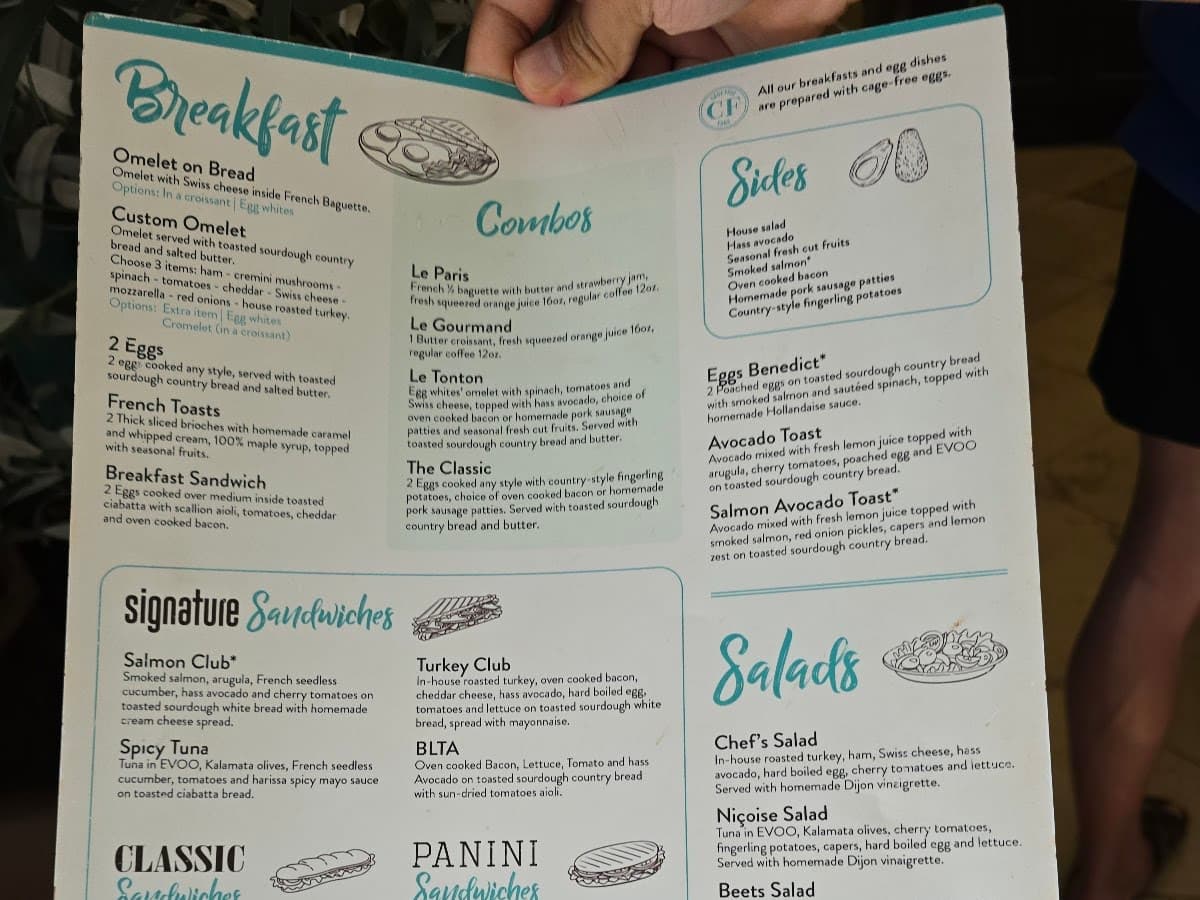 Breakfast
Omelet on Bread
Omelet with Swiss cheese inside French Baguette.
Options: In a croissant | Egg whites
Custom Omelet
Omelet served with toasted sourdough country
bread and salted butter.
Choose 3 items: ham - cremini mushrooms -
spinach - tomatoes - cheddar - Swiss cheese -
mozzarella - red onions - house roasted turkey.
Options: Extra item | Egg whites
Cromelet (in a croissant)
2 Eggs
2 eggs cooked any style, served with toasted
sourdough country bread and salted butter.
French Toasts
2 Thick sliced brioches with homemade caramel
and whipped cream, 100% maple syrup, topped
with seasonal fruits.
Breakfast Sandwich
2 Eggs cooked over medium inside toasted
ciabatta with scallion aioli, tomatoes, cheddar
and oven cooked bacon.
Combos
Le Paris
French ½ baguette with butter and strawberry jam,
fresh squeezed orange juice 16oz, regular coffee 12oz.
Le Gourmand
1 Butter croissant, fresh squeezed orange juice 16oz,
regular coffee 12oz.
Le Tonton
Egg whites' omelet with spinach, tomatoes and
Swiss cheese, topped with hass avocado, choice of
oven cooked bacon or homemade pork sausage
patties and seasonal fresh cut fruits. Served with
toasted sourdough country bread and butter.
The Classic
2 Eggs cooked any style with country-style fingerling
potatoes, choice of oven cooked bacon or homemade
pork sausage patties. Served with toasted sourdough
country bread and butter.
CF
All our breakfasts and egg dishes
are prepared with cage-free eggs.
Sides
House salad
Hass avocado
Seasonal fresh cut fruits
Smoked salmon*
Oven cooked bacon
Homemade pork sausage patties
Country-style fingerling potatoes
Eggs Benedict*
2 Poached eggs on toasted sourdough country bread
with smoked salmon and sautéed spinach, topped with
homemade Hollandaise sauce.
Avocado Toast
Avocado mixed with fresh lemon juice topped with
arugula, cherry tomatoes, poached egg and EVOO
on toasted sourdough country bread.
Salmon Avocado Toast*
Avocado mixed with fresh lemon juice topped with
smoked salmon, red onion pickles, capers and lemon
zest on toasted sourdough country bread.
signature Sandwiches
Salmon Club*
Smoked salmon, arugula, French seedless
cucumber, hass avocado and cherry tomatoes on
toasted sourdough white bread with homemade
cream cheese spread.
Spicy Tuna
Tuna in EVOO, Kalamata olives, French seedless
cucumber, tomatoes and harissa spicy mayo sauce
on toasted ciabatta bread.
Turkey Club
In-house roasted turkey, oven cooked bacon,
cheddar cheese, hass avocado, hard boiled egg,
tomatoes and lettuce on toasted sourdough white
bread, spread with mayonnaise.
BLTA
Oven cooked Bacon, Lettuce, Tomato and hass
Avocado on toasted sourdough country bread
with sun-dried tomatoes aioli.
CLASSIC
Sandwiches
PANINI
Sandwiches
Salads
Chef's Salad
In-house roasted turkey, ham, Swiss cheese, hass
avocado, hard boiled egg, cherry tomatoes and lettuce.
Served with homemade Dijon vinaigrette.
Niçoise Salad
Tuna in EVOO, Kalamata olives, cherry tomatoes,
fingerling potatoes, capers, hard boiled egg and lettuce.
Served with homemade Dijon vinaigrette.
Beets Salad